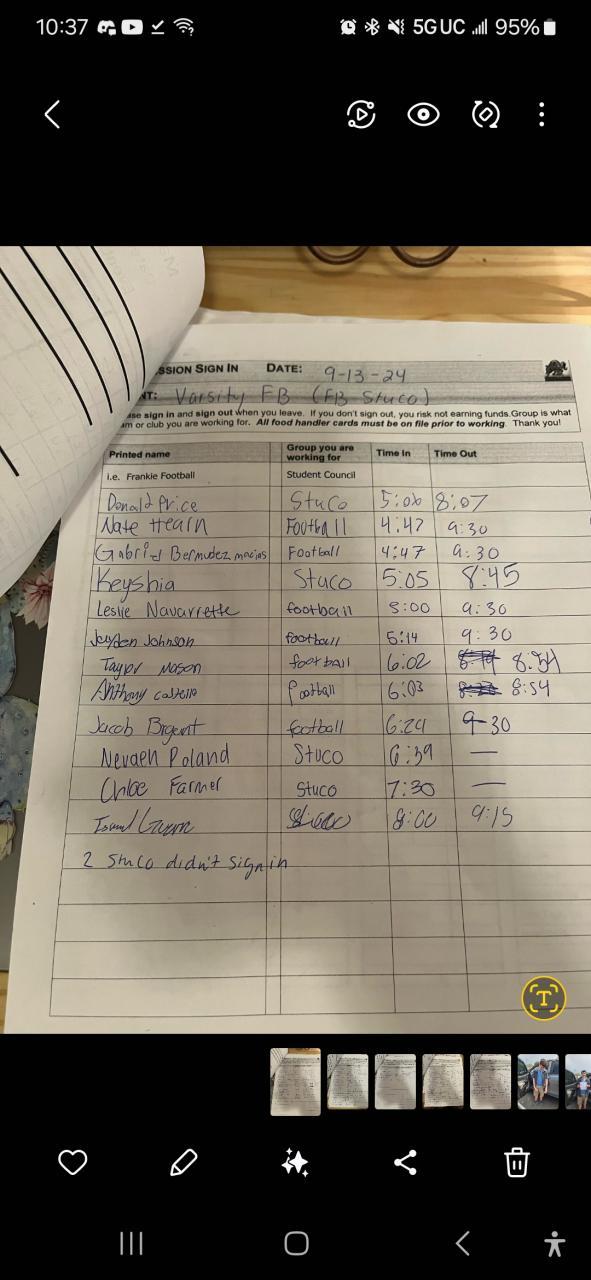 10:37
5G UC
95%
SSION SIGN IN DATE: 9-13-24
NT: Varsity FB (FB Stuco)
se sign in and sign out when you leave. If you don't sign out, you risk not earning funds. Group is what
am or club you are working for. All food handler cards must be on file prior to working. Thank you!
Printed name Group you are working for Time In Time Out
i.e. Frankie Football Student Council
Donald Price StuCo 5:06 8:07
Nate Hearn Football 4:47 9:30
Gabriel Bermudez macias Football 4:47 9:30
Keyshia Stuco 5:05 8:45
Leslie Navarrette football 5:00 9:30
Jayden Johnson football 5:14 9:30
Taylor Mason football 6:02 8:54
Anthony football 6:03 8:54
Jacob football 6:24 9-30
Nevaeh Poland Stuco 6:39 —
Chloe Farmer Stuco 7:30 —
8:00 9:15
2 Stuco didn't sign in
T